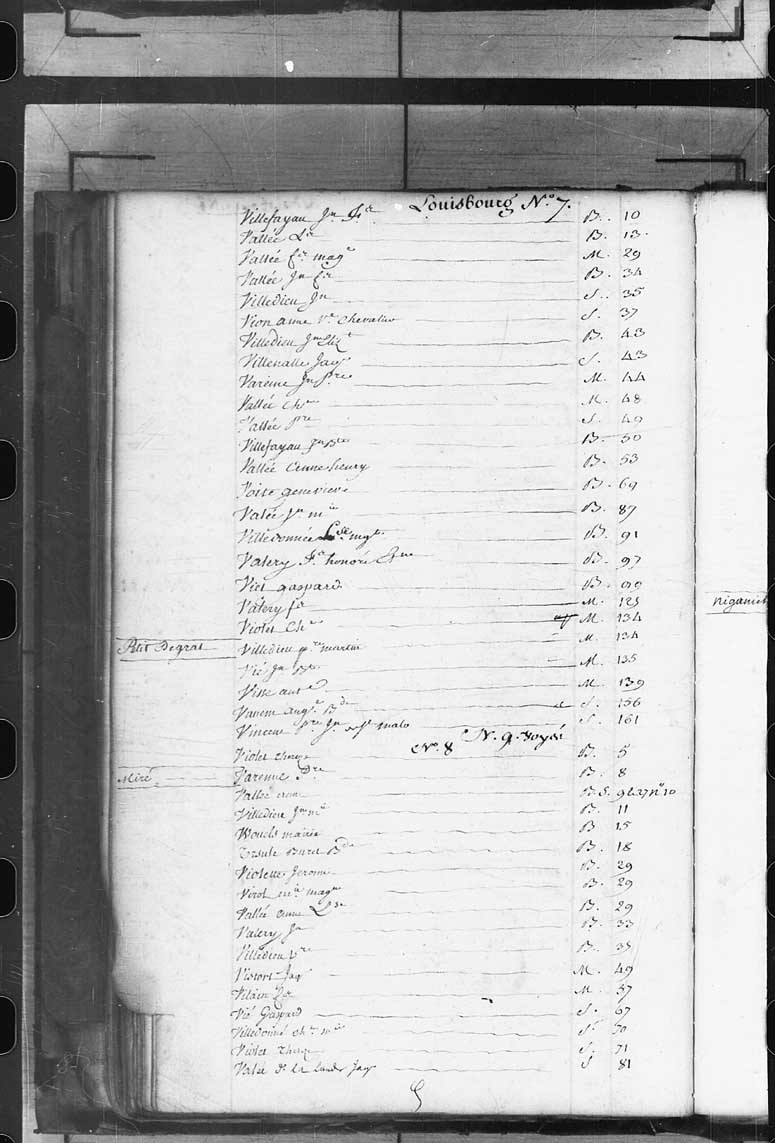 Louisbourg N.o 7.
Villefayau Jn Fr B. 10
Vallée Ls B. 13.
Vallée fse magne M. 29
Vallée Jn fr B. 34
Villedieu Jn S. 35
Vion anne Ve Chevalier S. 37
Villedieu Jn B. 43
Villenalle Jacq S. 43
Varenne Jn Pre M. 44
Vallée Chs M. 48
Vallée pre S. 49
Villefayau Jn Bte B. 50
Vallée henry B. 53
Voise genevieve B. 69
Valée Jn mie B. 87
Villedonnée Lse mgte B. 91
Valery Js honoré B. 97
Viet gaspard B. 99
Valery fr M. 125
Violet Chs M. 134
Petit Degrat Villedieu pre martin M. 134
Vié Jn Bte M. 135
Visse ant M. 139
Vanem aug S. 156
Vincent pre Jn de St malo S. 161
No. 8 N. 9. voyés
Violet B. 5
Miré Varenne Pre B. 8
Vallée B S. 9 &37 No 10
Villedieu Jn B. 11
Wouels marie B 15
Ursule B. 18
Violette Jerome B. 29
Virot mie magne B. 29
Vallée anne Lse B. 29
Valery Jn B. 33
Villedieu pre B. 35
Vistort Jacq M. 49
Vilain fr M. 57
Vié Gaspard S. 67
Villedonné S. 70
Violet S. 71
Valée de la lande Jacq S 81
niganich